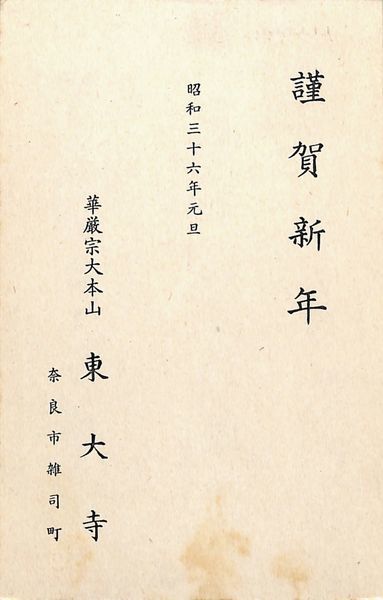 謹賀新年
昭和三十六年元旦
華厳宗大本山 東大寺
奈良市雑司町